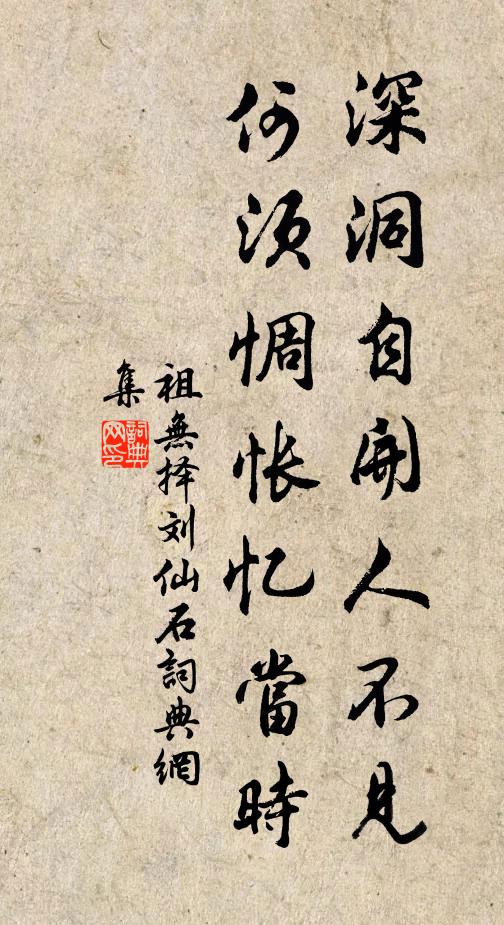 深洞自開人不見
何須惆怅忆當時
祖無择刘仙石詞典網
集
詞典網印